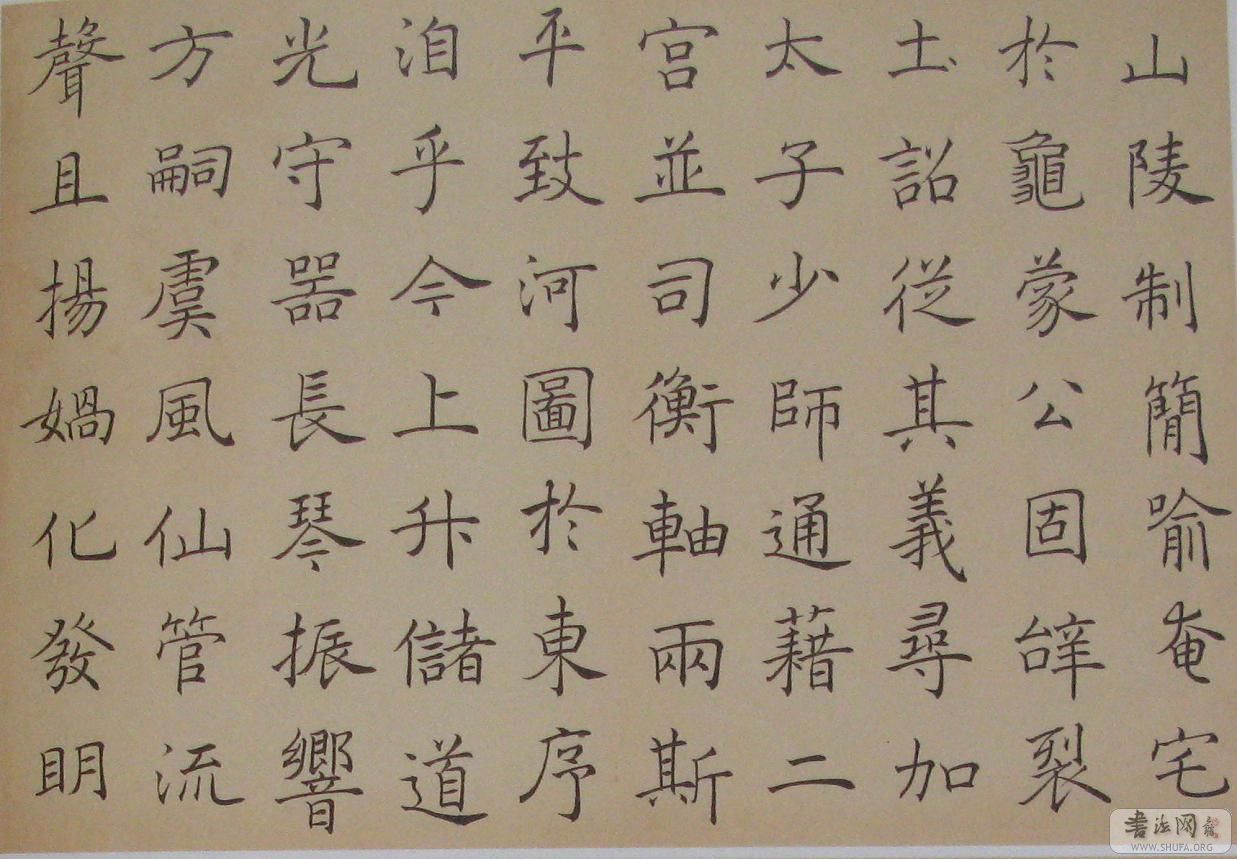 山陵制簡喻奄宅
於龜蒙公固辤裂
土詔從其義尋加
太子少師通藉二
宮並司衡軸兩斯
平致河圖於東序
洎乎今上升儲道
光守器長琴振響
方嗣虞風仙管流
聲且揚媧化發明
書法网
WWW.SHUFA.ORG